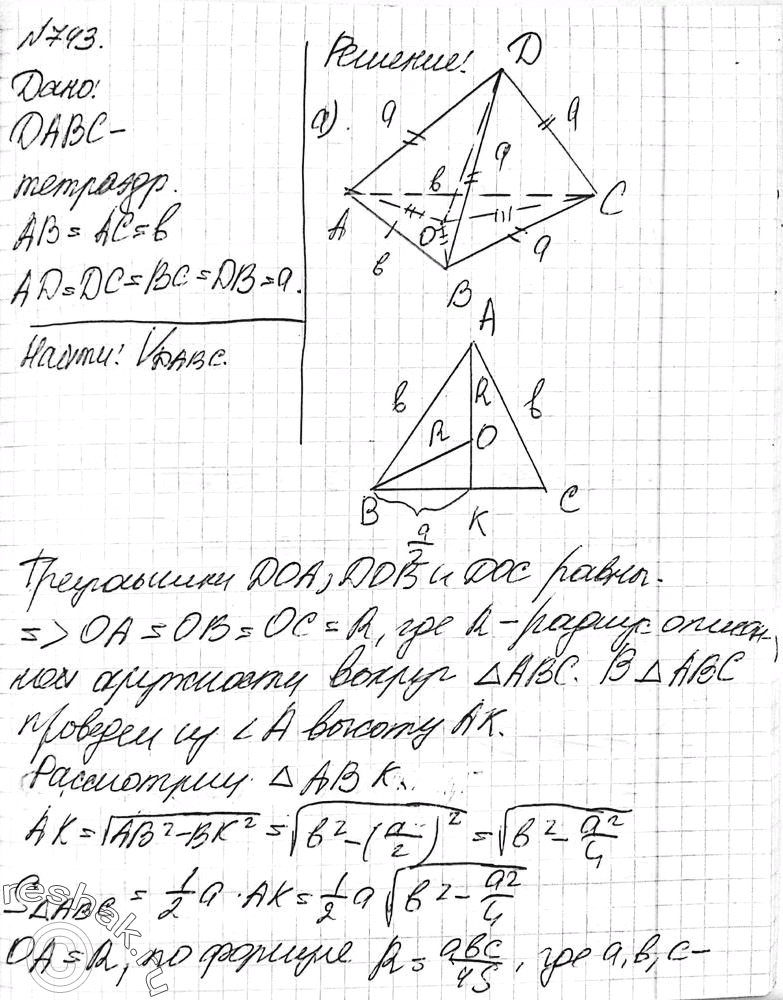 №743.
Дано:
DABC –
тетраэдр.
AB = AC = в
AD = DC = BC = DB = a.
Найти: V_DABC.
Решение:
а).
D
a
a
a
в
A
C
O
в
a
B
A
в
R
в
R
O
B
K
C
a/2
Треугольники DOA, DOB и DOC равны.
=> OA = OB = OC = R, где R – радиус описан-
ной окружности вокруг △ABC. В △ABC
проведем из ∠A высоту AK.
Рассмотрим △ABK.
AK = √(AB² – BK²) = √(в² – (a/2)²) = √(в² – a²/4)
S△ABC = 1/2 a · AK = 1/2 a √(в² – a²/4)
OA = R, по формуле R = aвc/4S, где a, в, c –
reshak.ru